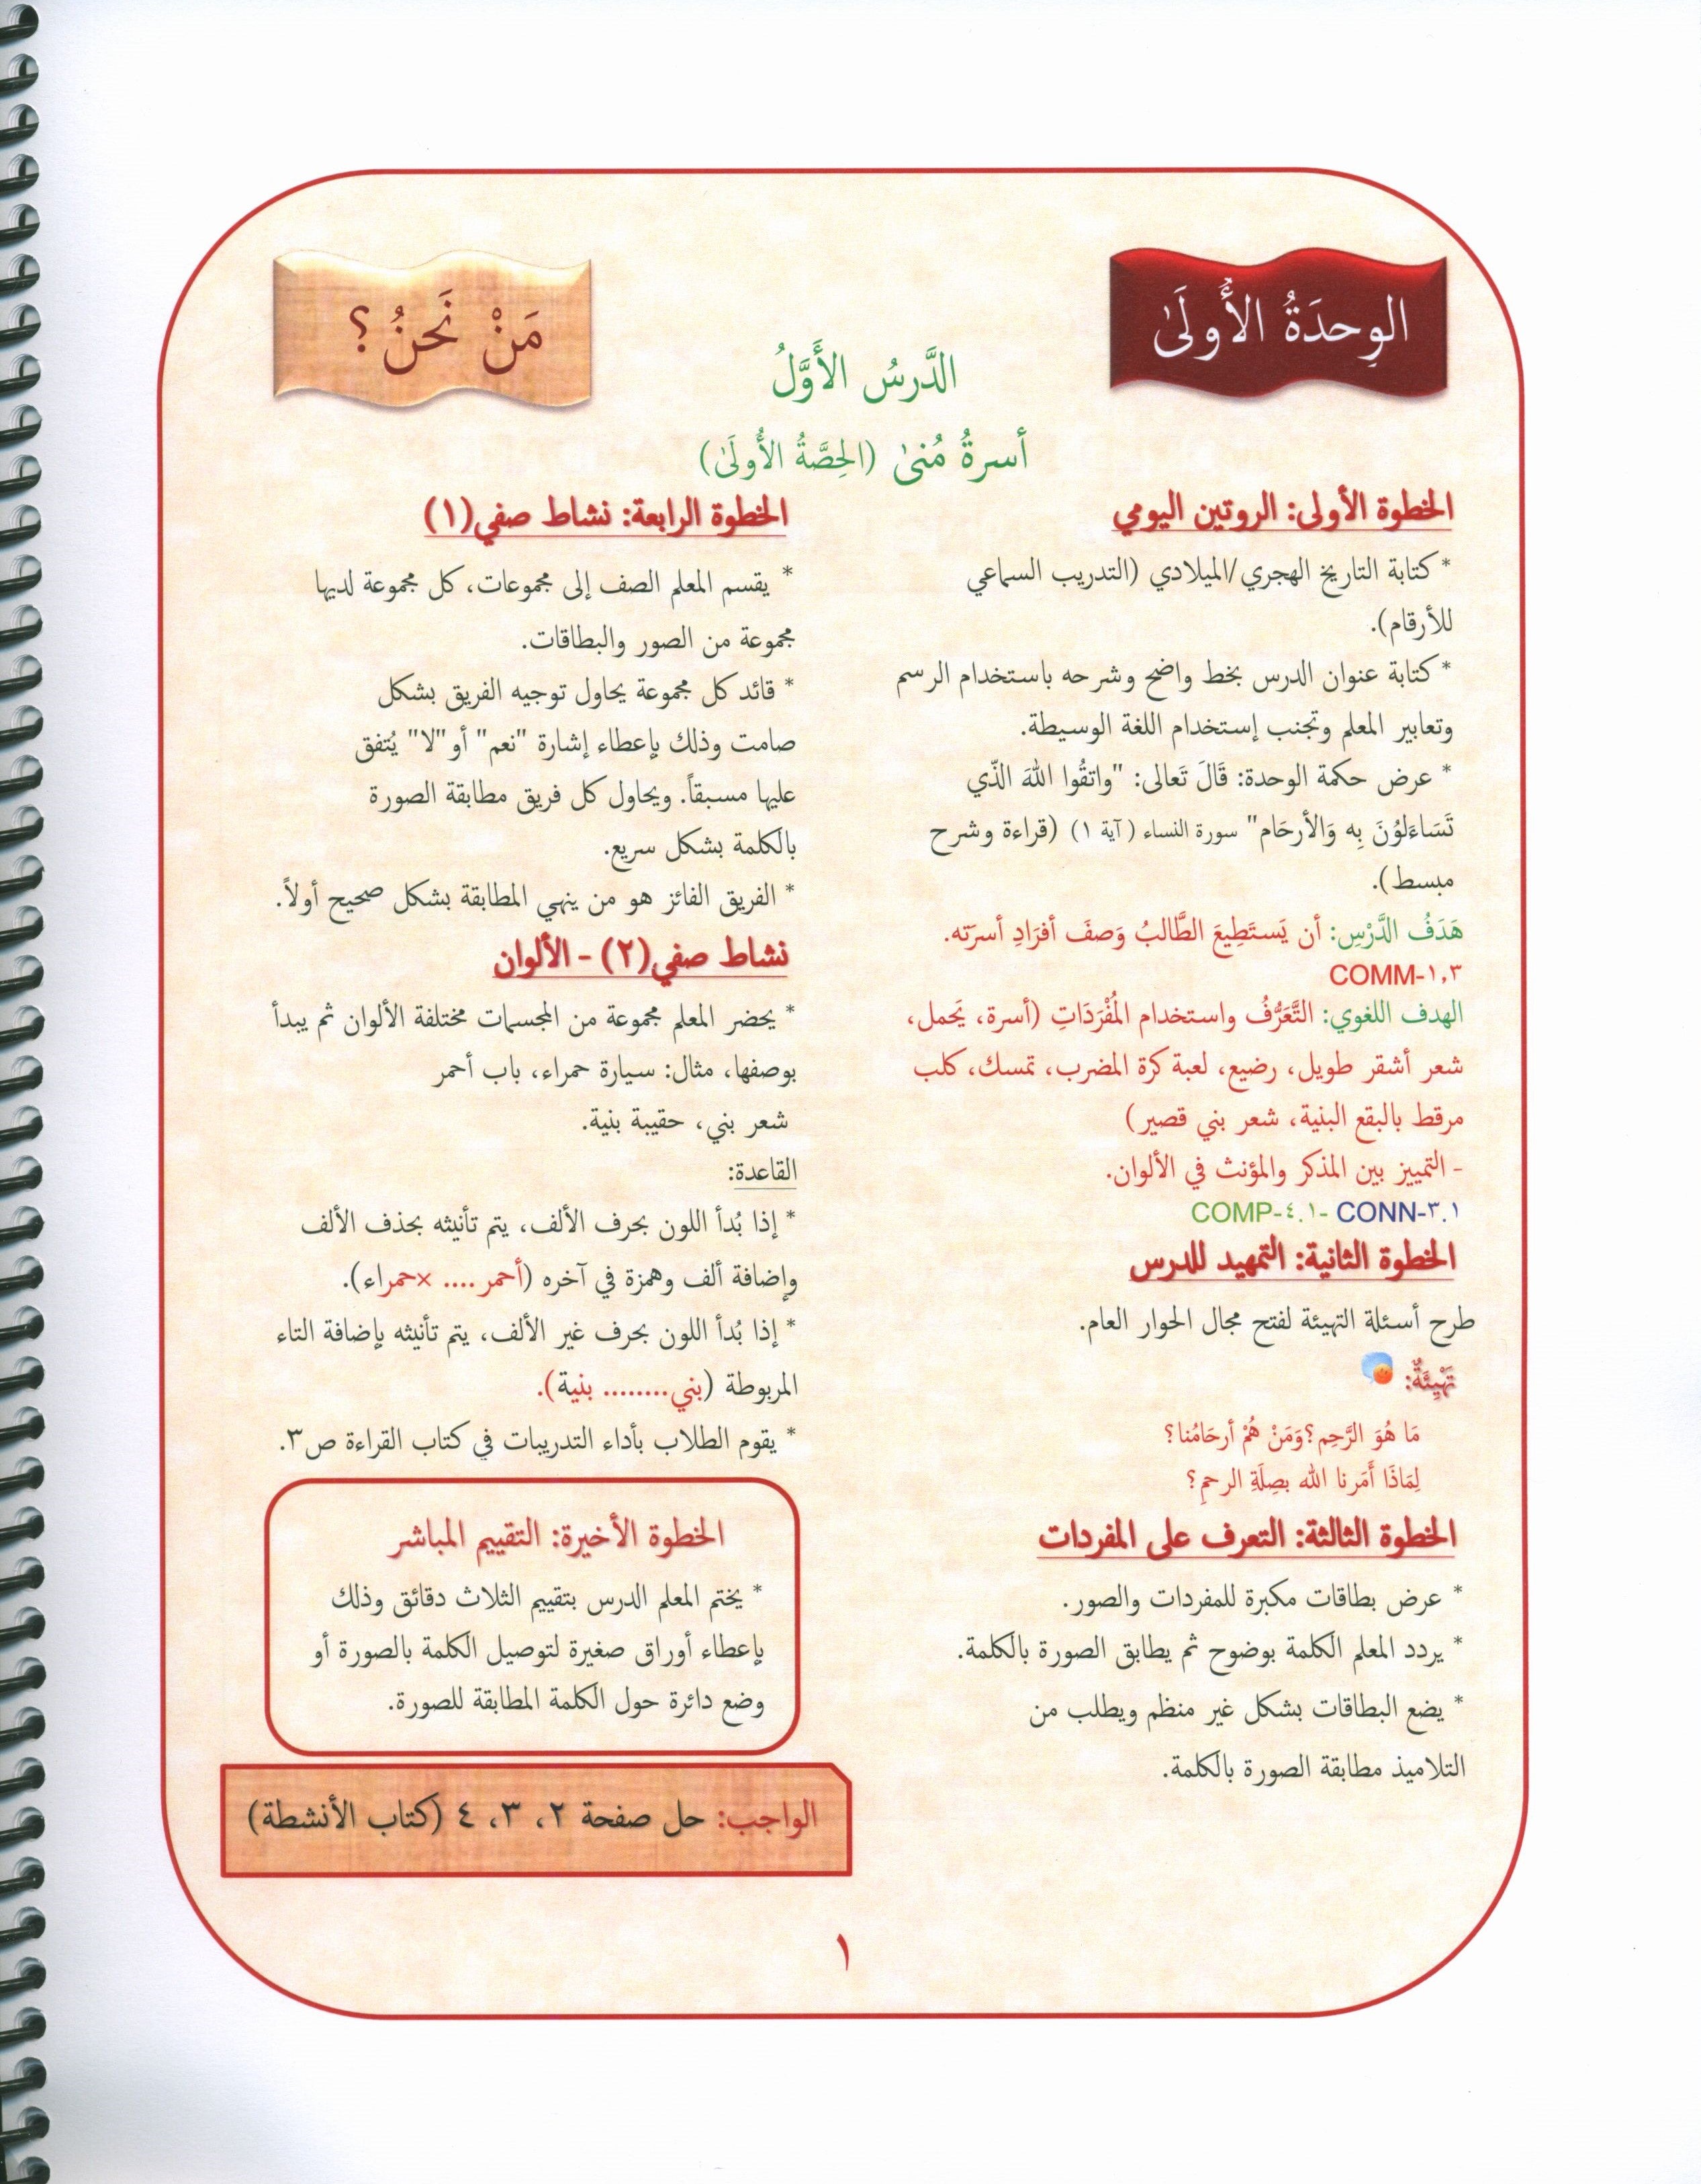 الوِحدَةُ الأُولَىٰ
مَنْ نَحنُ؟
الدَّرسُ الأَوَّلُ
أسرةُ مُنىٰ (الحِصَّةُ الأُولَىٰ)
الخطوة الأولى: الروتين اليومي
* كتابة التاريخ الهجري/الميلادي (التدريب السماعي
للأرقام).
* كتابة عنوان الدرس بخط واضح وشرحه باستخدام الرسم
وتعابير المعلم وتجنب إستخدام اللغة الوسيطة.
* عرض حكمة الوحدة: قَالَ تَعالى: "واتقُوا اللهَ الذّي
تَسَاءَلوُنَ بِه وَالأرحَام" سورة النساء (آية ١) (قراءة وشرح
مبسط).
هَدَفُ الدَّرْسِ: أن يَستَطِيعَ الطَّالبُ وَصفَ أفرَادِ أسرَته.
COMM-١,٣
الهدف اللغوي: التَّعَرُّفُ واستخدام المُفْرَدَاتِ (أسرة، يَحمل،
شعر أشقر طويل، رضيع، لعبة كرة المضرب، تمسك، كلب
مرقط بالبقع البنية، شعر بني قصير)
- التمييز بين المذكر والمؤنث في الألوان.
COMP-٤.١- CONN-٣.١
الخطوة الثانية: التمهيد للدرس
طرح أسئلة التهيئة لفتح مجال الحوار العام.
تَهْيِئَةٌ:
مَا هُوَ الرَّحِم؟وَمَنْ هُمْ أرحَامُنا؟
لِمَاذَا أَمَرنا الله بصِلَةِ الرحمِ؟
الخطوة الثالثة: التعرف على المفردات
* عرض بطاقات مكبرة للمفردات والصور.
* يردد المعلم الكلمة بوضوح ثم يطابق الصورة بالكلمة.
* يضع البطاقات بشكل غير منظم ويطلب من
التلاميذ مطابقة الصورة بالكلمة.
الخطوة الرابعة: نشاط صفي(١)
* يقسم المعلم الصف إلى مجموعات، كل مجموعة لديها
مجموعة من الصور والبطاقات.
* قائد كل مجموعة يحاول توجيه الفريق بشكل
صامت وذلك بإعطاء إشارة "نعم" أو"لا" يُتفق
عليها مسبقاً. ويحاول كل فريق مطابقة الصورة
بالكلمة بشكل سريع.
* الفريق الفائز هو من ينهي المطابقة بشكل صحيح أولاً.
نشاط صفي(٢) - الألوان
* يحضر المعلم مجموعة من المجسمات مختلفة الألوان ثم يبدأ
بوصفها، مثال: سيارة حمراء، باب أحمر
شعر بني، حقيبة بنية.
القاعدة:
* إذا بُدأ اللون بحرف الألف، يتم تأنيثه بحذف الألف
وإضافة ألف وهمزة في آخره (أحمر .... ×حمراء).
* إذا بُدأ اللون بحرف غير الألف، يتم تأنيثه بإضافة التاء
المربوطة (بني........ بنية).
* يقوم الطلاب بأداء التدريبات في كتاب القراءة ص٣.
الخطوة الأخيرة: التقييم المباشر
* يختم المعلم الدرس بتقييم الثلاث دقائق وذلك
بإعطاء أوراق صغيرة لتوصيل الكلمة بالصورة أو
وضع دائرة حول الكلمة المطابقة للصورة.
الواجب: حل صفحة ٢، ٣، ٤ (كتاب الأنشطة)
١